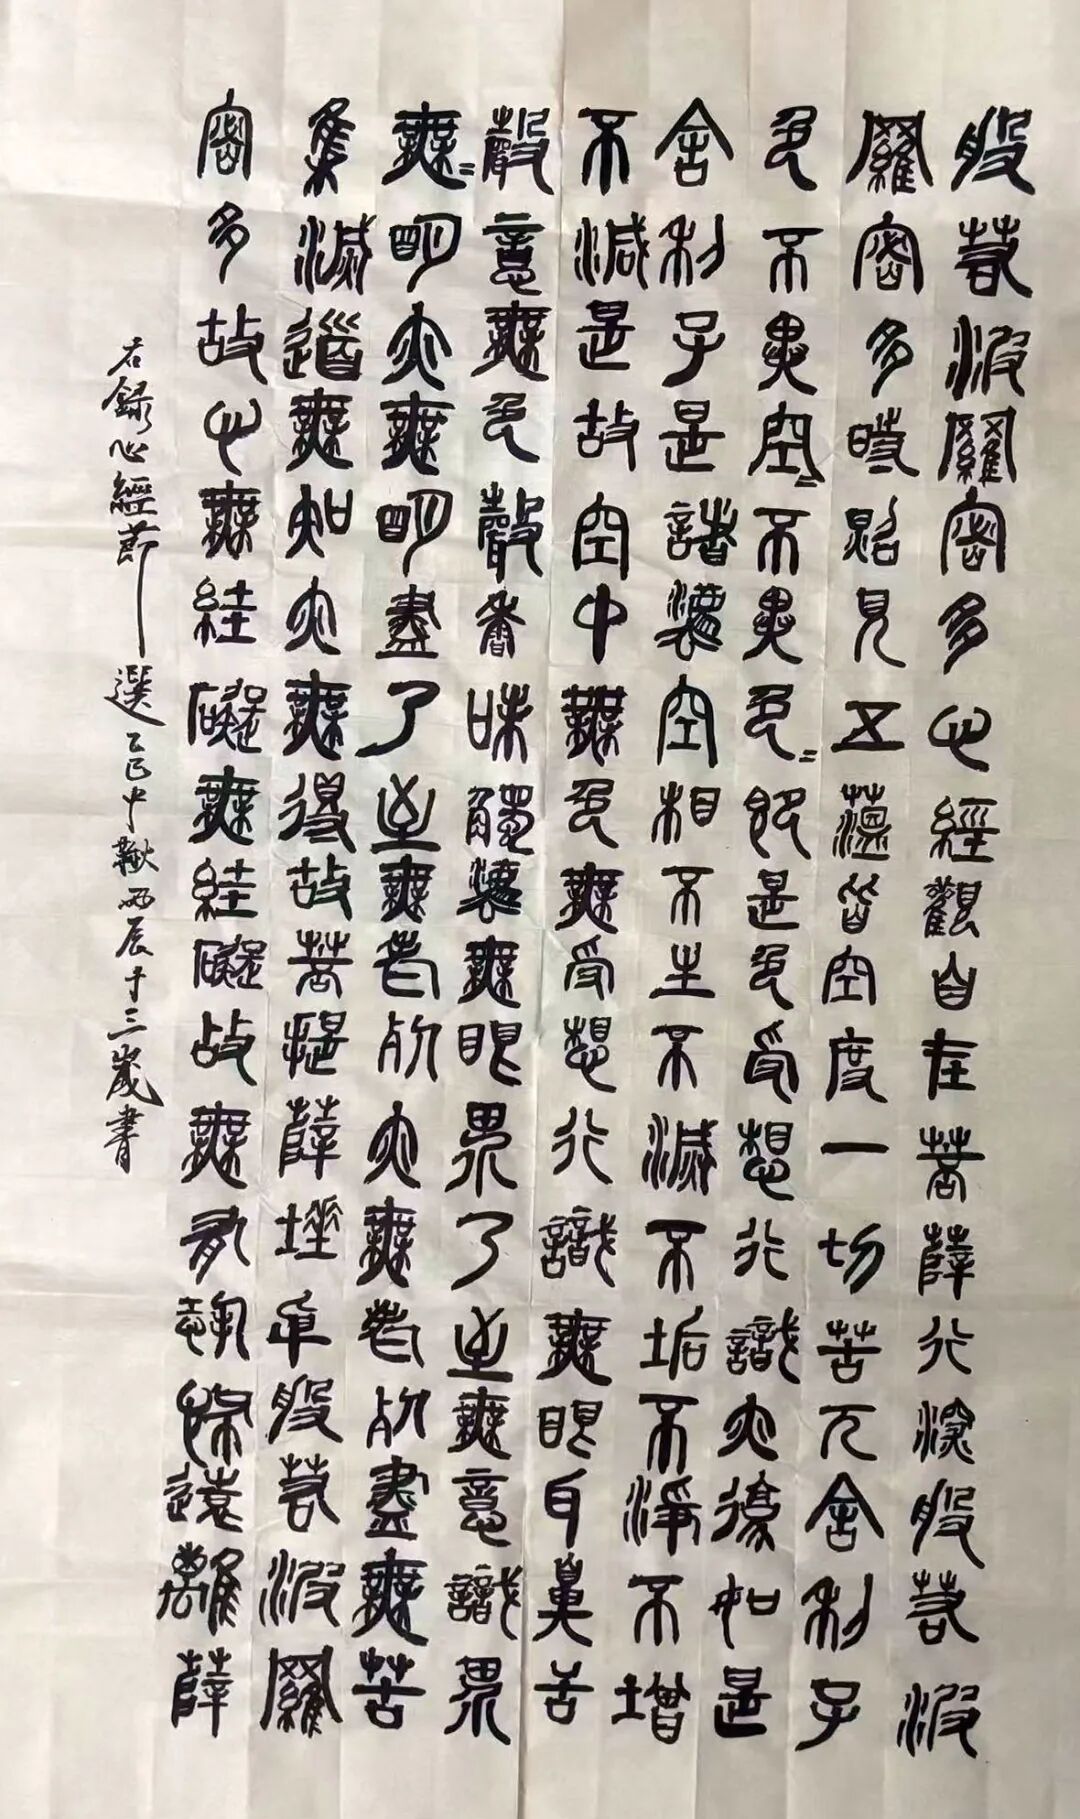 般若波羅密多心經觀自在菩薩行深般若波
羅密多時照見五蘊皆空度一切苦厄舍利子
色不異空〻不異色〻即是色受想行識亦復如是
舍利子是諸法空相不生不滅不垢不淨不增
不減是故空中無色無受想行識無眼耳鼻舌
聲意無色聲香味觸法無眼界乃至無意識界
無〻明亦無明盡乃至無老死亦無老死盡無苦
集滅道無知亦無得故菩提薩埵般若波羅
密多故心無絓礙無絓礙故無有恐怖遠離薩
右錄心經節選 乙巳中秋丙辰十三歲書